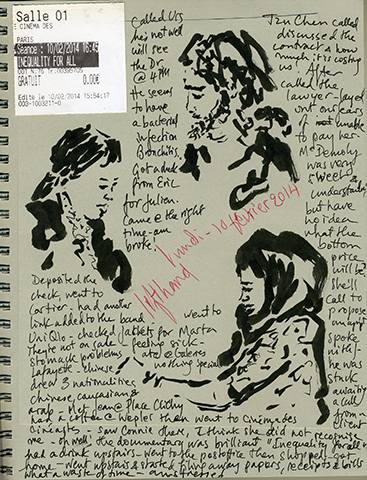 Salle 01
E CINEMA DES
PARIS
Séance : 10/02/2014 16:45
INEQUALITY FOR ALL
GRATUIT 0.00€
Edité le 10/02/2014 15:54:17
003-1003211-0
Called Urs
he's not well
will see
the Dr
@ 4PM
He seems
to have
a bacterial
infection
Bronchitis.
Got a deck
from Eric
for Julien.
Came @ the right
time - am
broke.
Tzu Chen called
discussed the
contract & how
much it is costing
us! After
called the
lawyer - layed
out our fears
of unable
to pay her
Me Demoly
was very
sweet &
understanding
but have
no idea
what the
bottom
price
will be,
she'll
call to
propose
spoke
with
he was
stuck
awaiting
a call
from a
client
lefthand lundi - 10 février 2014
Deposited the
check, went to
Cartier - had another
link added to the band
went to
UniQlo - checked jackets for Marta
They're not on sale - feeling sick -
stomach problems ate @ Galeries
Lafayette - chinese nothing special
dred 3 nationalities
chinese, caucasian &
arab. Met Jean @ Place Clichy
had a coffee @ Wepler then went to Cinéma des
Cinéastes - saw Connie there, I think she did not recognise
me - oh well! the documentary was brilliant "Inequality for all"
had a drink upstairs - went to the post office then shopped - got
home - went upstairs & started filing away papers, receipts & bills
what a waste of time - am stressed